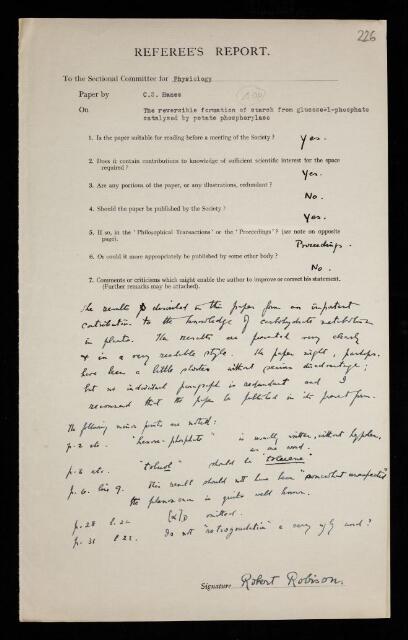 226
REFEREE'S REPORT.
To the Sectional Committee for Physiology
Paper by C.S. Hanes
On The reversible formation of starch from glucose-1-phosphate
catalysed by potato phosphorylase
1. Is the paper suitable for reading before a meeting of the Society? Yes.
2. Does it contain contributions to knowledge of sufficient scientific interest for the space
required? Yes.
3. Are any portions of the paper, or any illustrations, redundant?
No.
4. Should the paper be published by the Society?
Yes.
5. If so, in the 'Philosophical Transactions' or the 'Proceedings'? (see note on opposite
page). Proceedings.
6. Or could it more appropriately be published by some other body?
No.
7. Comments or criticisms which might enable the author to improve or correct his statement.
(Further remarks may be attached).
The results described in this paper form an important
contribution to the knowledge of carbohydrate metabolism
in plants. The results are presented very clearly
& in a very readable style. The paper might, perhaps,
have been a little shorter without serious disadvantage;
but no individual paragraph is redundant and I
recommend that the paper be published in its present form.
The following minor points are noted:
p. 2 etc. "hexose-phosphate" is usually written, without hyphen,
as one word.
p. 6 etc. "toluol" should be "toluene"
p. 6. line 9. This result should not have been "somewhat unexpected"
the phenomenon is quite well known.
p. 28 l. 22 [α]D omitted.
p. 31 l. 22. Is not "retrogradation" a very ugly word?
Signature Robert Robison.